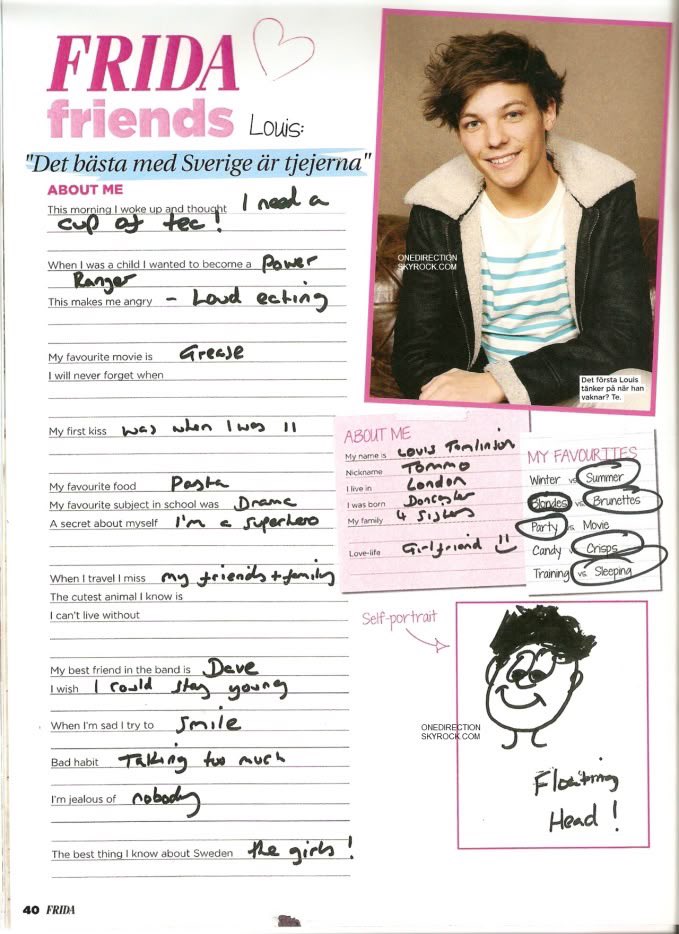 FRIDA
friends Louis:
"Det bästa med Sverige är tjejerna"
ABOUT ME
This morning I woke up and thought I need a
cup of tea!
When I was a child I wanted to become a Power
Ranger
This makes me angry - Loud eating
My favourite movie is Grease
I will never forget when
My first kiss was when I was 11
My favourite food Pasta
My favourite subject in school was Drama
A secret about myself I'm a superhero
When I travel I miss my friends + family
The cutest animal I know is
I can't live without
My best friend in the band is Dave
I wish I could stay young
When I'm sad I try to smile
Bad habit Talking too much
I'm jealous of nobody
The best thing I know about Sweden the girls!
40 FRIDA
ONEDIRECTION
SKYROCK.COM
Det första Louis
tänker på när han
vaknar? Te.
ABOUT ME
My name is Louis Tomlinson
Nickname Tommo
I live in London
I was born Doncaster
My family 4 sisters
Love-life Girlfriend !!
MY FAVOURITES
Winter vs. Summer
Blondes vs. Brunettes
Party vs. Movie
Candy vs. Crisps
Training vs. Sleeping
Self-portrait
ONEDIRECTION
SKYROCK.COM
Floating
Head!